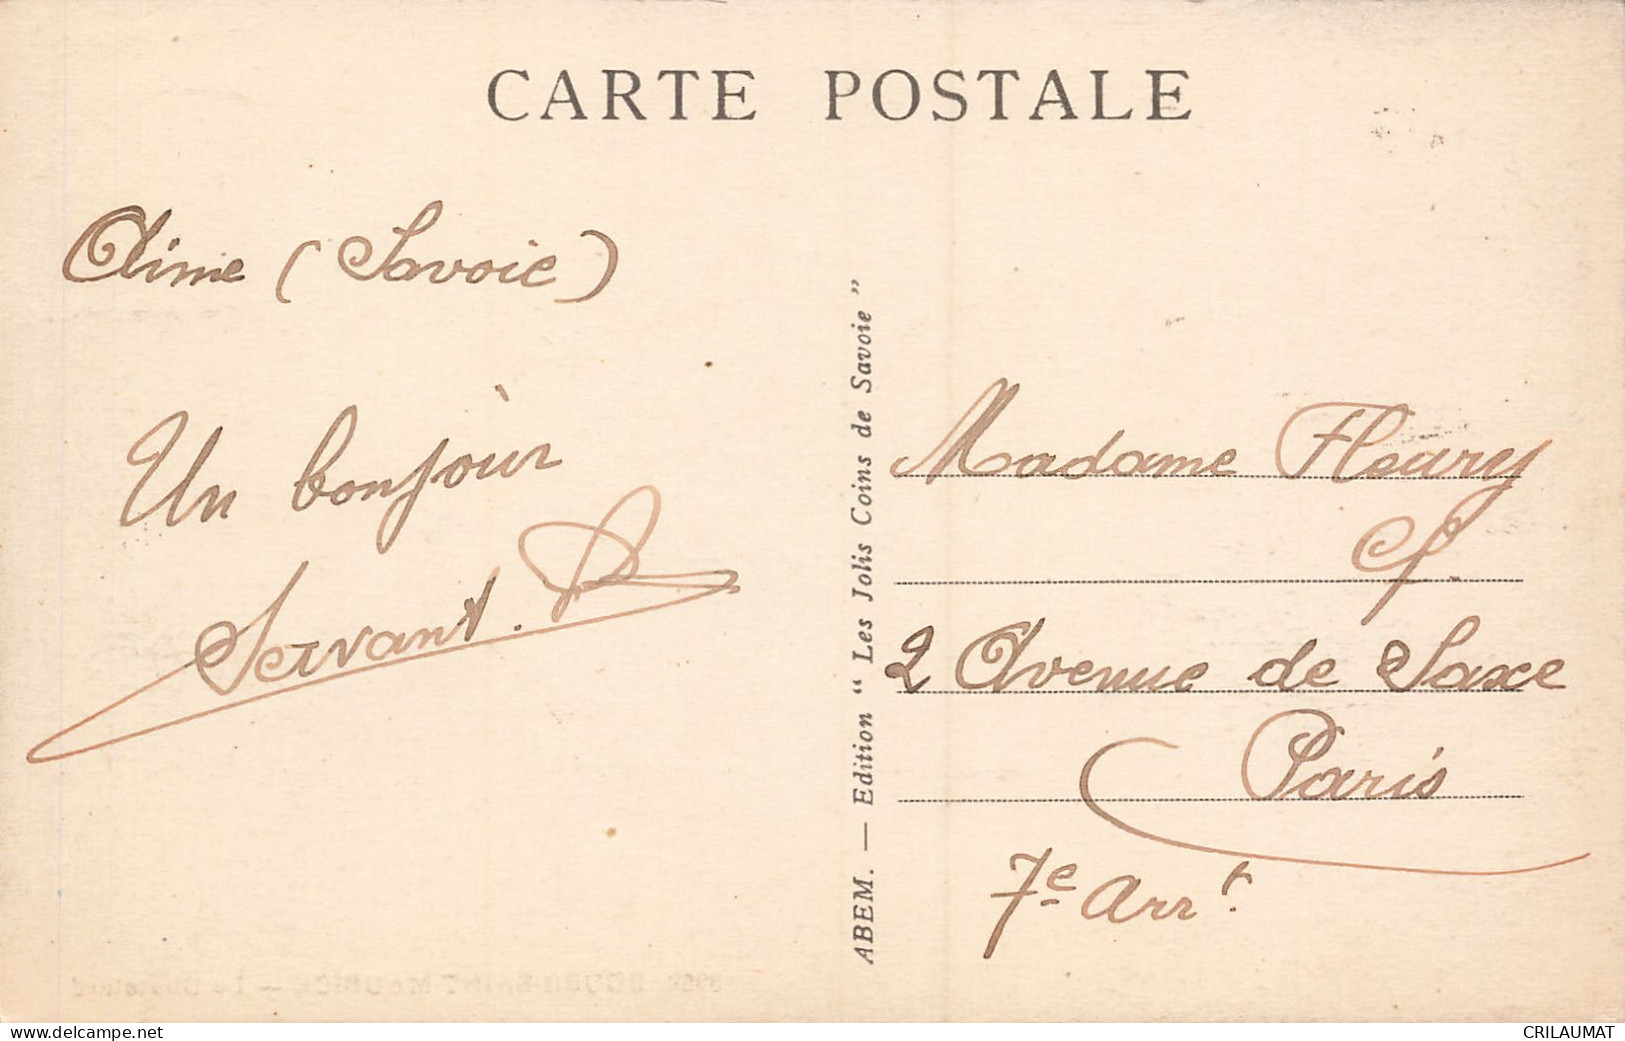 CARTE POSTALE
Aime (Savoie)
Un bonjour
Servant.
ABEM. — Edition “ Les Jolis Coins de Savoie ”
Madame Fleury
2 Avenue de Saxe
Paris
7e Arrt.
www.delcampe.net
CRILAUMAT